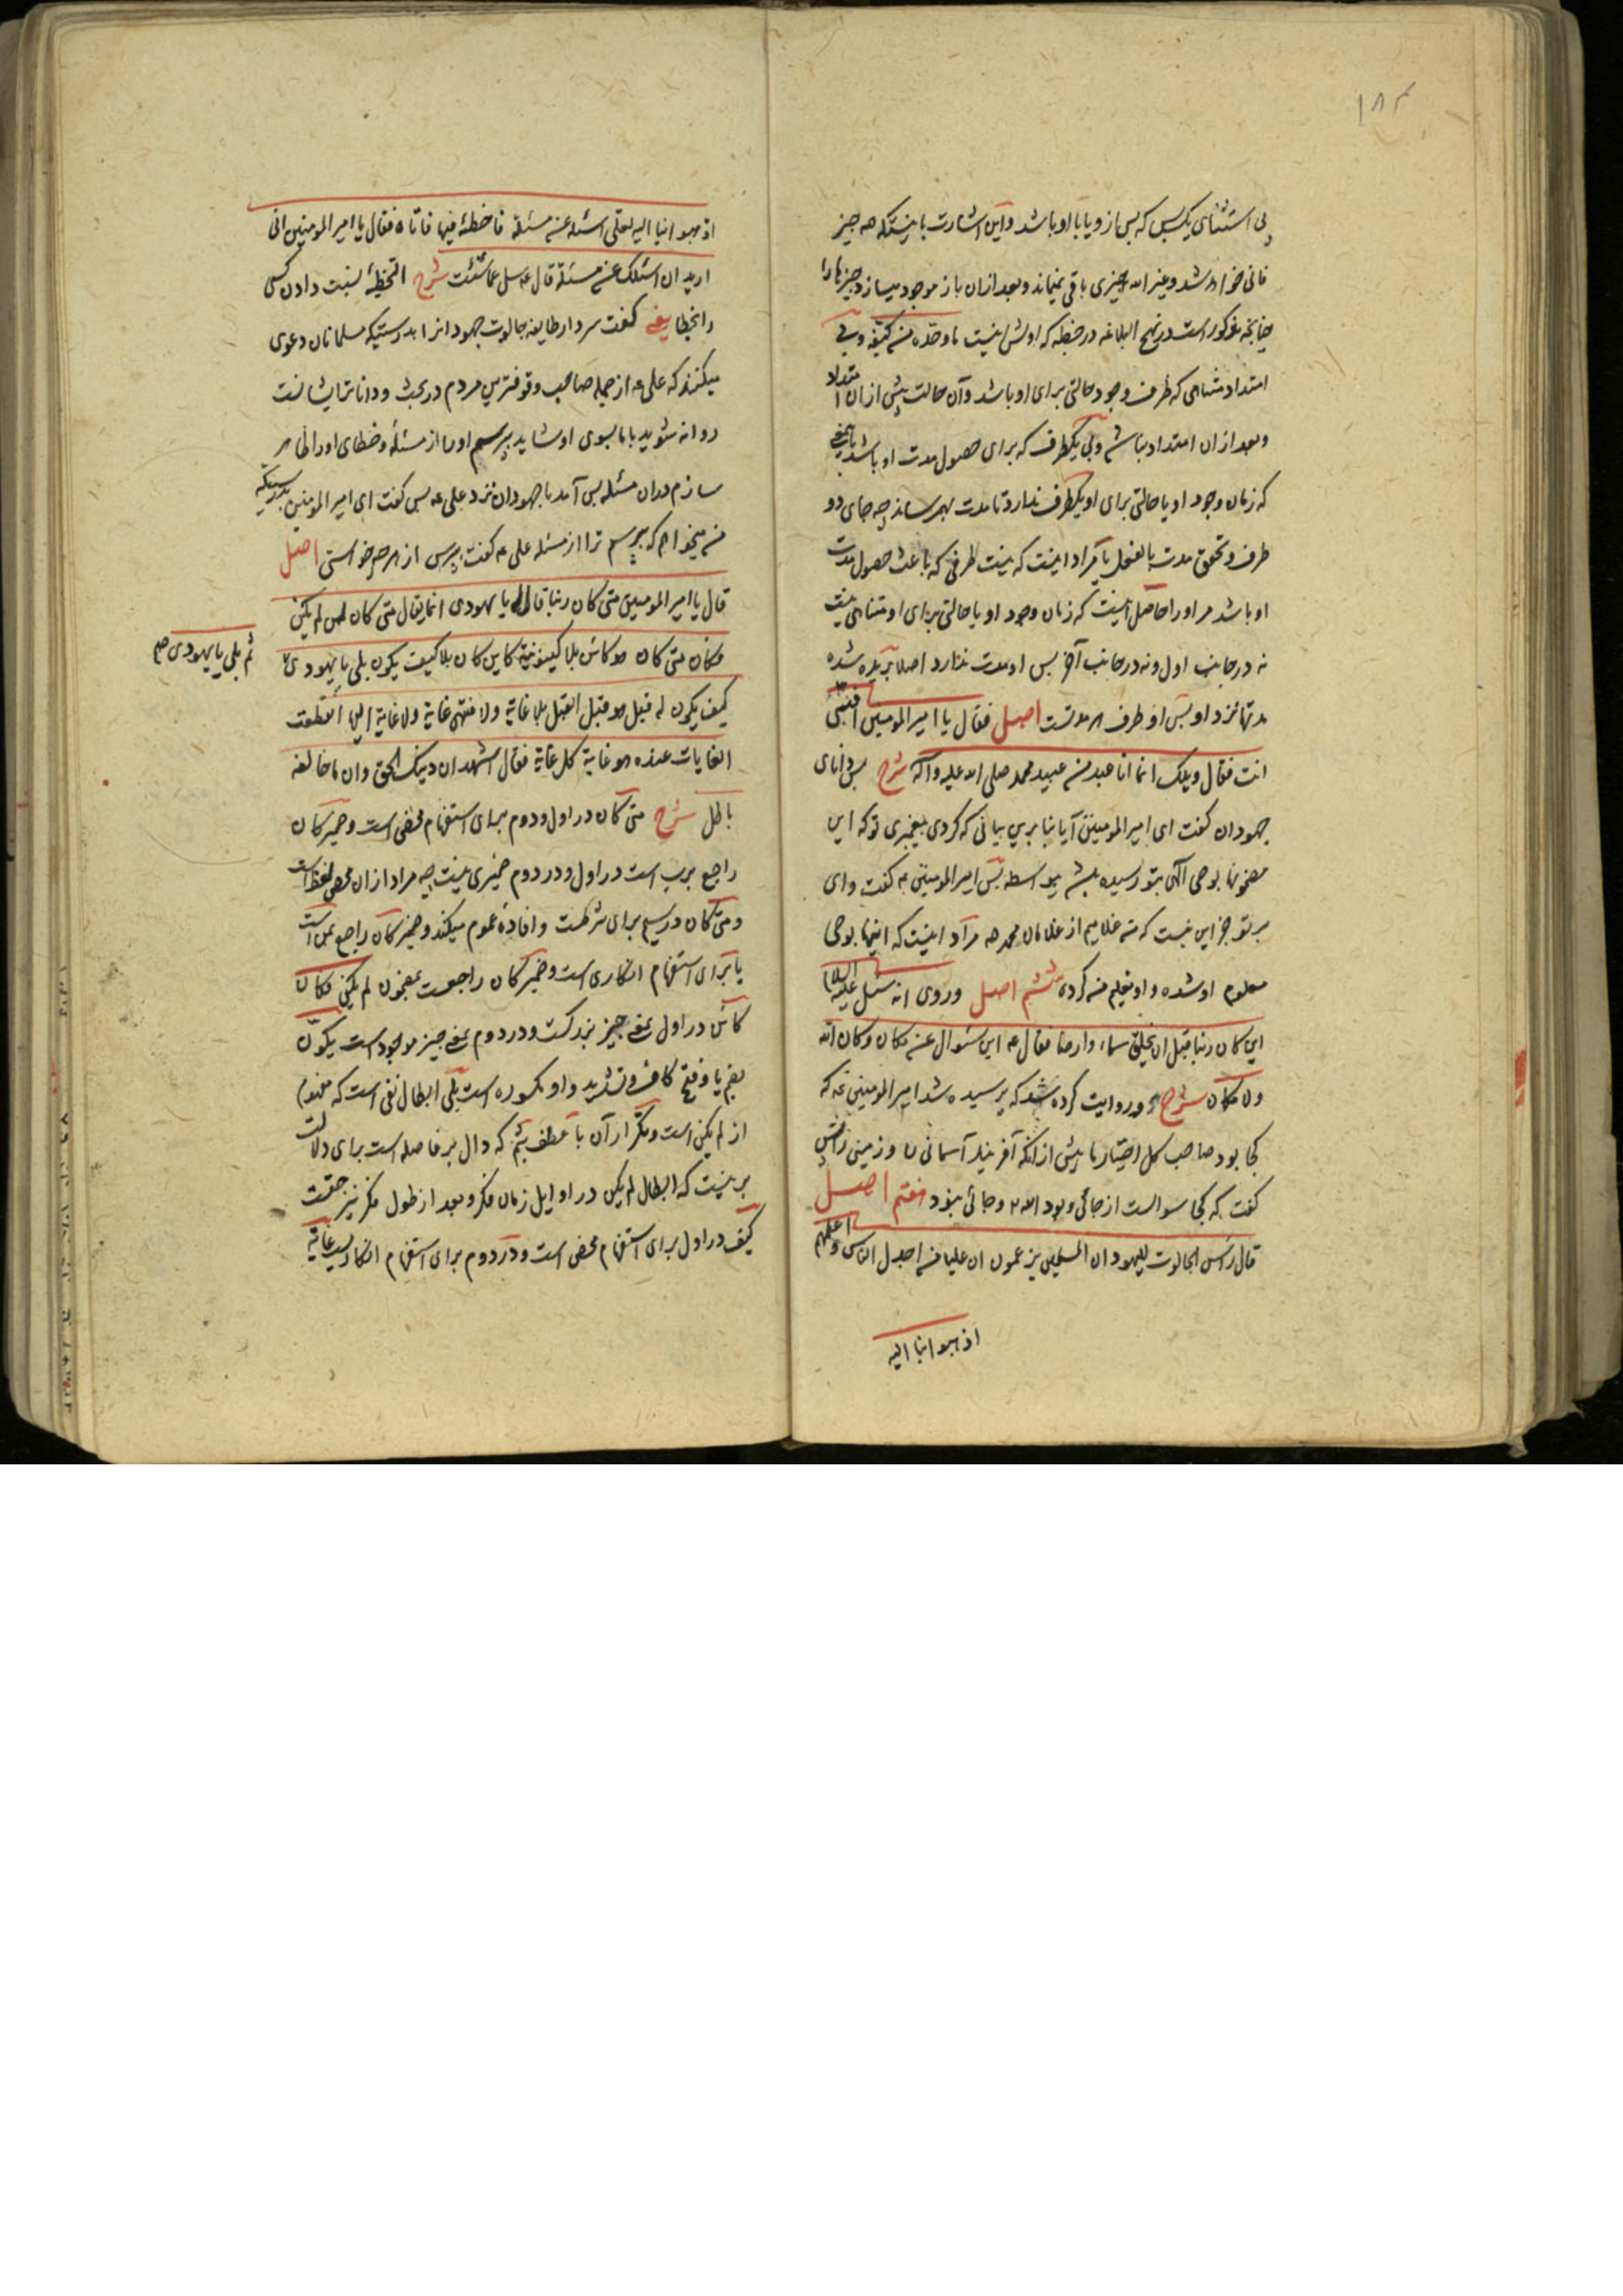 ۱۸۴
بی استثنای یکبس که بس از و یا با او باشد و این اشارت باینستکه هه چیز
فانی خواهد شد و غیر الله چیزی باقی نمیماند و بعد ازان باز موجود میسازد چیزها را
چنانچه مذکور است در نهج البلاغه در خطبه که اولش اینست ما وحّده من کیّفه و بی
امتداد متناهی که ظرف وجود حالتی برای او باشد و آن حالت پیش ازان امتداد
و بعد ازان امتداد نباشد و بی یکطرف که برای حصول مدت او باشد یعنی
که زمان وجود او یا حالتی برای او یکطرف ندارد تا مدت بهم رساند چه جای دو
طرف و تحقق مدت بالفعل یا مراد اینست که نیست طرفی که باعث حصول مدت
او باشد مر او را حاصل اینست که زمان وجود او یا حالتی برای او متناهی نیست
نه در جانب اول و نه در جانب آخر بس او مدت ندارد اصلا بریده شده
مدتها نزد او بس او طرف هر مدتست اصل فقال یا امیر المومنین افنبیّ
انت فقال ویلک انما انا عبد من عبید محمد صلی الله علیه وآله شرح بس دانای
جهودان گفت ای امیر المومنین آیا بنا برین بیانی که کردی پیغمبری تو که این
مضمونها بوحی الهی بتو رسیده باشد بیواسطه بس امیر المومنین ع گفت وای
بر تو جز این نیست که من غلامیم از غلامان محمد ص مراد اینست که اینها بوحی
معلوم او شده و او تعلیم من کرده ششم اصل وروی انه سئل علیه السلام
این کان ربنا قبل ان یخلق سماء وارضا فقال ع این سئوال عن مکان وکان الله
ولا مکان شرح و روایت کرده شد که پرسیده شد امیر المومنین ع که
کجا بود صاحب کل اختیار ما پیش ازانکه آفریند آسمانی را و زمینی را بس
گفت که کجا سوالست از جائی و بود الله و جائی نبود هفتم اصل
قال رأس الجالوت للیهود ان المسلمین یزعمون ان علیا من اجدل الناس واعلمهم
اذهبوا بنا الیه
اذهبوا بنا الیه لعلی اسئله عن مسئلة فاخطئه فیها فاتاه فقال یا امیر المومنین انی
ارید ان اسئلک عن مسئلة قال ع سل عما شئت شرح التخطئة نسبت دادن کسی
را بخطا یعنی گفت سردار طایفه جالوت جهودانرا بدرستیکه مسلمانان دعوی
میکنند که علی ع از جمله صاحب وقوفترین مردم در بحث و داناتر ایشانست
روانه شوید با ما بسوی او شاید پرسم او را از مسئلهٔ و خطای او را ظاهر
سازم دران مسئله بس آمد با جهودان نزد علی ع بس گفت ای امیر المومنین بدرستیکه
من میخواهم که بپرسم ترا از مسئله علی ع گفت بپرس از هر چه خواستی اصل
قال یا امیر المومنین متی کان ربنا قال له یا یهودی انما یقال متی کان لمن لم یکن
فکان متی کان هو کائن بلا کینونیة کاین کان بلا کیف یکون بلی یا یهودی
ثم بلی یا یهودی صح
کیف یکون له قبل هو قبل القبل بلا غایة ولا منتهی غایة ولا غایة الیها انقطعت
الغایات عنده هو غایة کل غایة فقال اشهد ان دینک الحق وان ما خالفه
باطل شرح متی کان در اول و دوم برای استفهام محض است و ضمیر کان
راجع برب است در اول و در دوم ضمیری نیست چه مراد ازان محض لفظ است
و متی کان در سیم برای شرطست و افادهٔ عموم میکند و ضمیر کان راجع بمن است
یا برای استفهام انکاری است و ضمیر کان راجعست بمضمون لم یکن فکان
کائن در اول بمعنی چیز بزرگست و در دوم بمعنی چیز موجود است یکوّن
بضم یا و فتح کاف و تشدید واو مکسوره است بلی ابطال نفی است که مفهوم
از لم یکن است و تکرار آن با عطف بثم که دال بر فاصله است برای دلالت
بر نیست که ابطال لم یکن در اوایل زمان فکر و بعد از طول فکر نیز حقست
کیف در اول برای استفهام محض است و در دوم برای استفهام انکاریست غایة